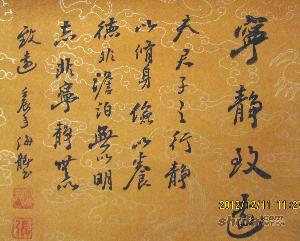 寧靜致遠
夫君子之行靜
以脩身儉以養
德非澹泊無以明
志非寧靜無以
致遠
2013/12/11